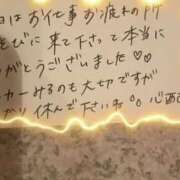 日は お仕事 お疲れの所
そびに 来て 下さって 本当に
がとうございました♡♡
カーみるのも 大切ですが
かり 休んで 下さいね